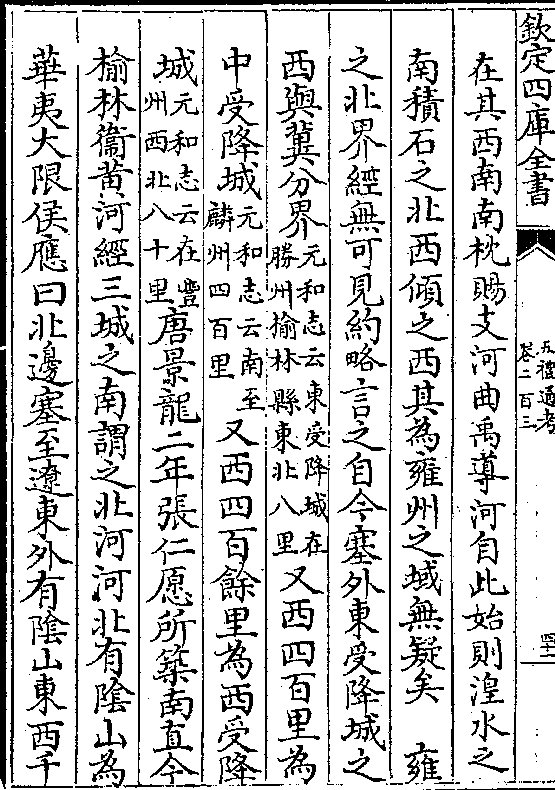 欽定四庫全書
五禮通考
卷二百三
四十一
在其西南南枕賜支河曲禹導河自此始則湟水之
南積石之北西傾之西其為雍州之域無疑矣　雍
之北界經無可見約略言之自今塞外東受降城之
西與冀分界元和志云東受降城在勝州榆林縣東北八里又西四百里為
中受降城元和志云南至麟州四百里又西四百餘里為西受降
城元和志云在豐州西北八十里唐景龍二年張仁愿所築南直今
榆林衞黄河經三城之南謂之北河河北有陰山為
華夷大限侯應曰北邊塞至遼東外有陰山東西千